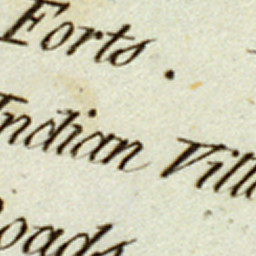 Forts.
Indian Vill
oads